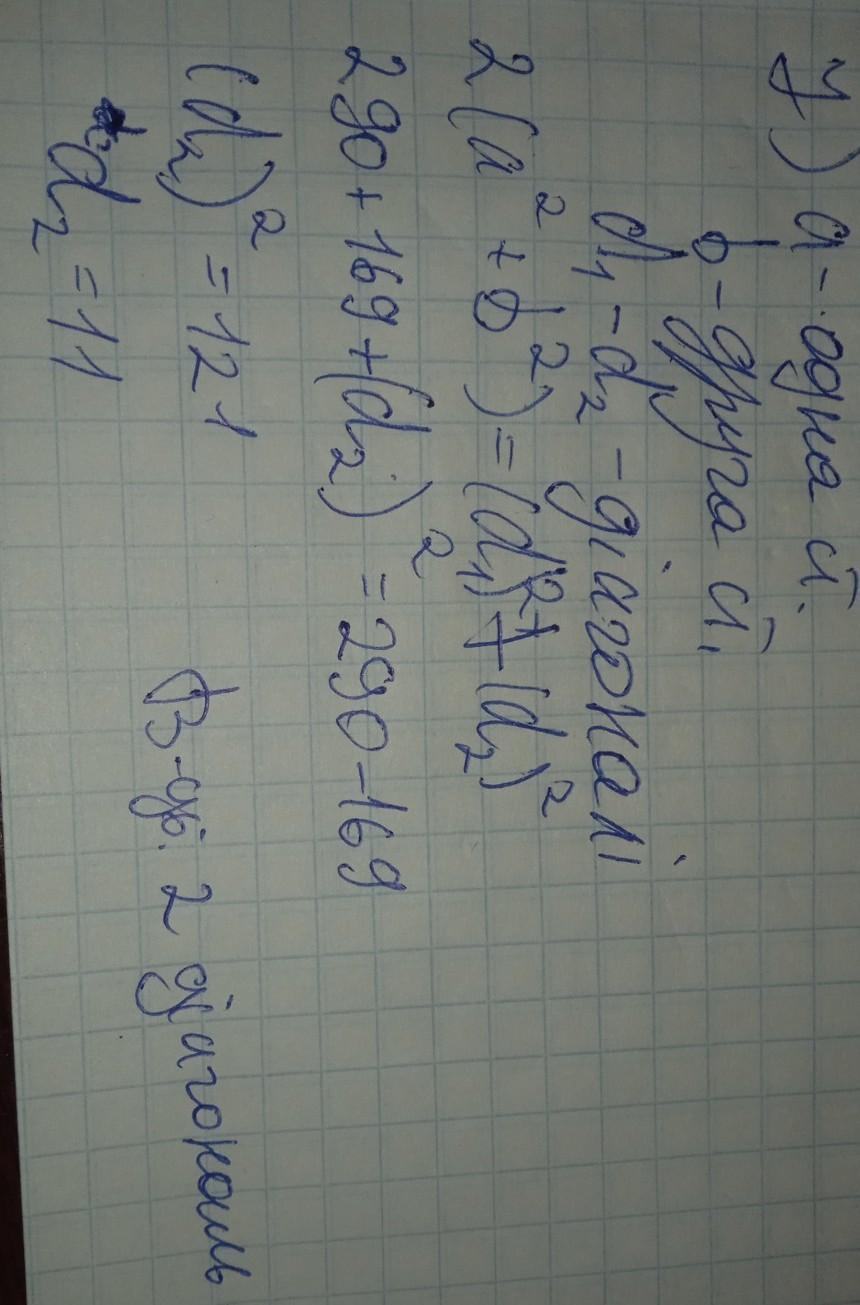 У) a - одна ст.
b - друга ст.
d₁ - d₂ - діагоналі
2(a² + b²) = (d₁)² + (d₂)²
290 + 169 + (d₂)² = 290 - 169
(d₂)² = 121
d₂ = 11
В-дь. 2 діагональ